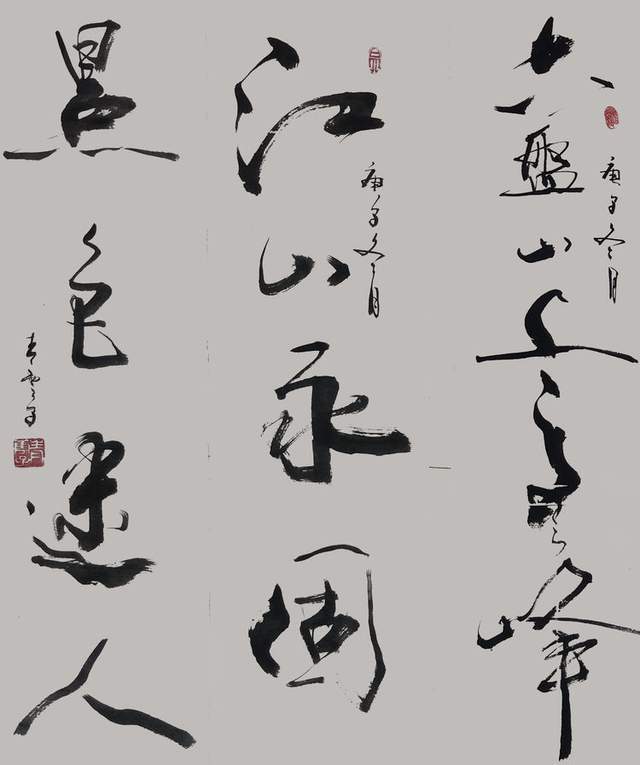 庚子冬月
六盤山上高峰
庚子冬月
江山永固
景色迷人
青雲子